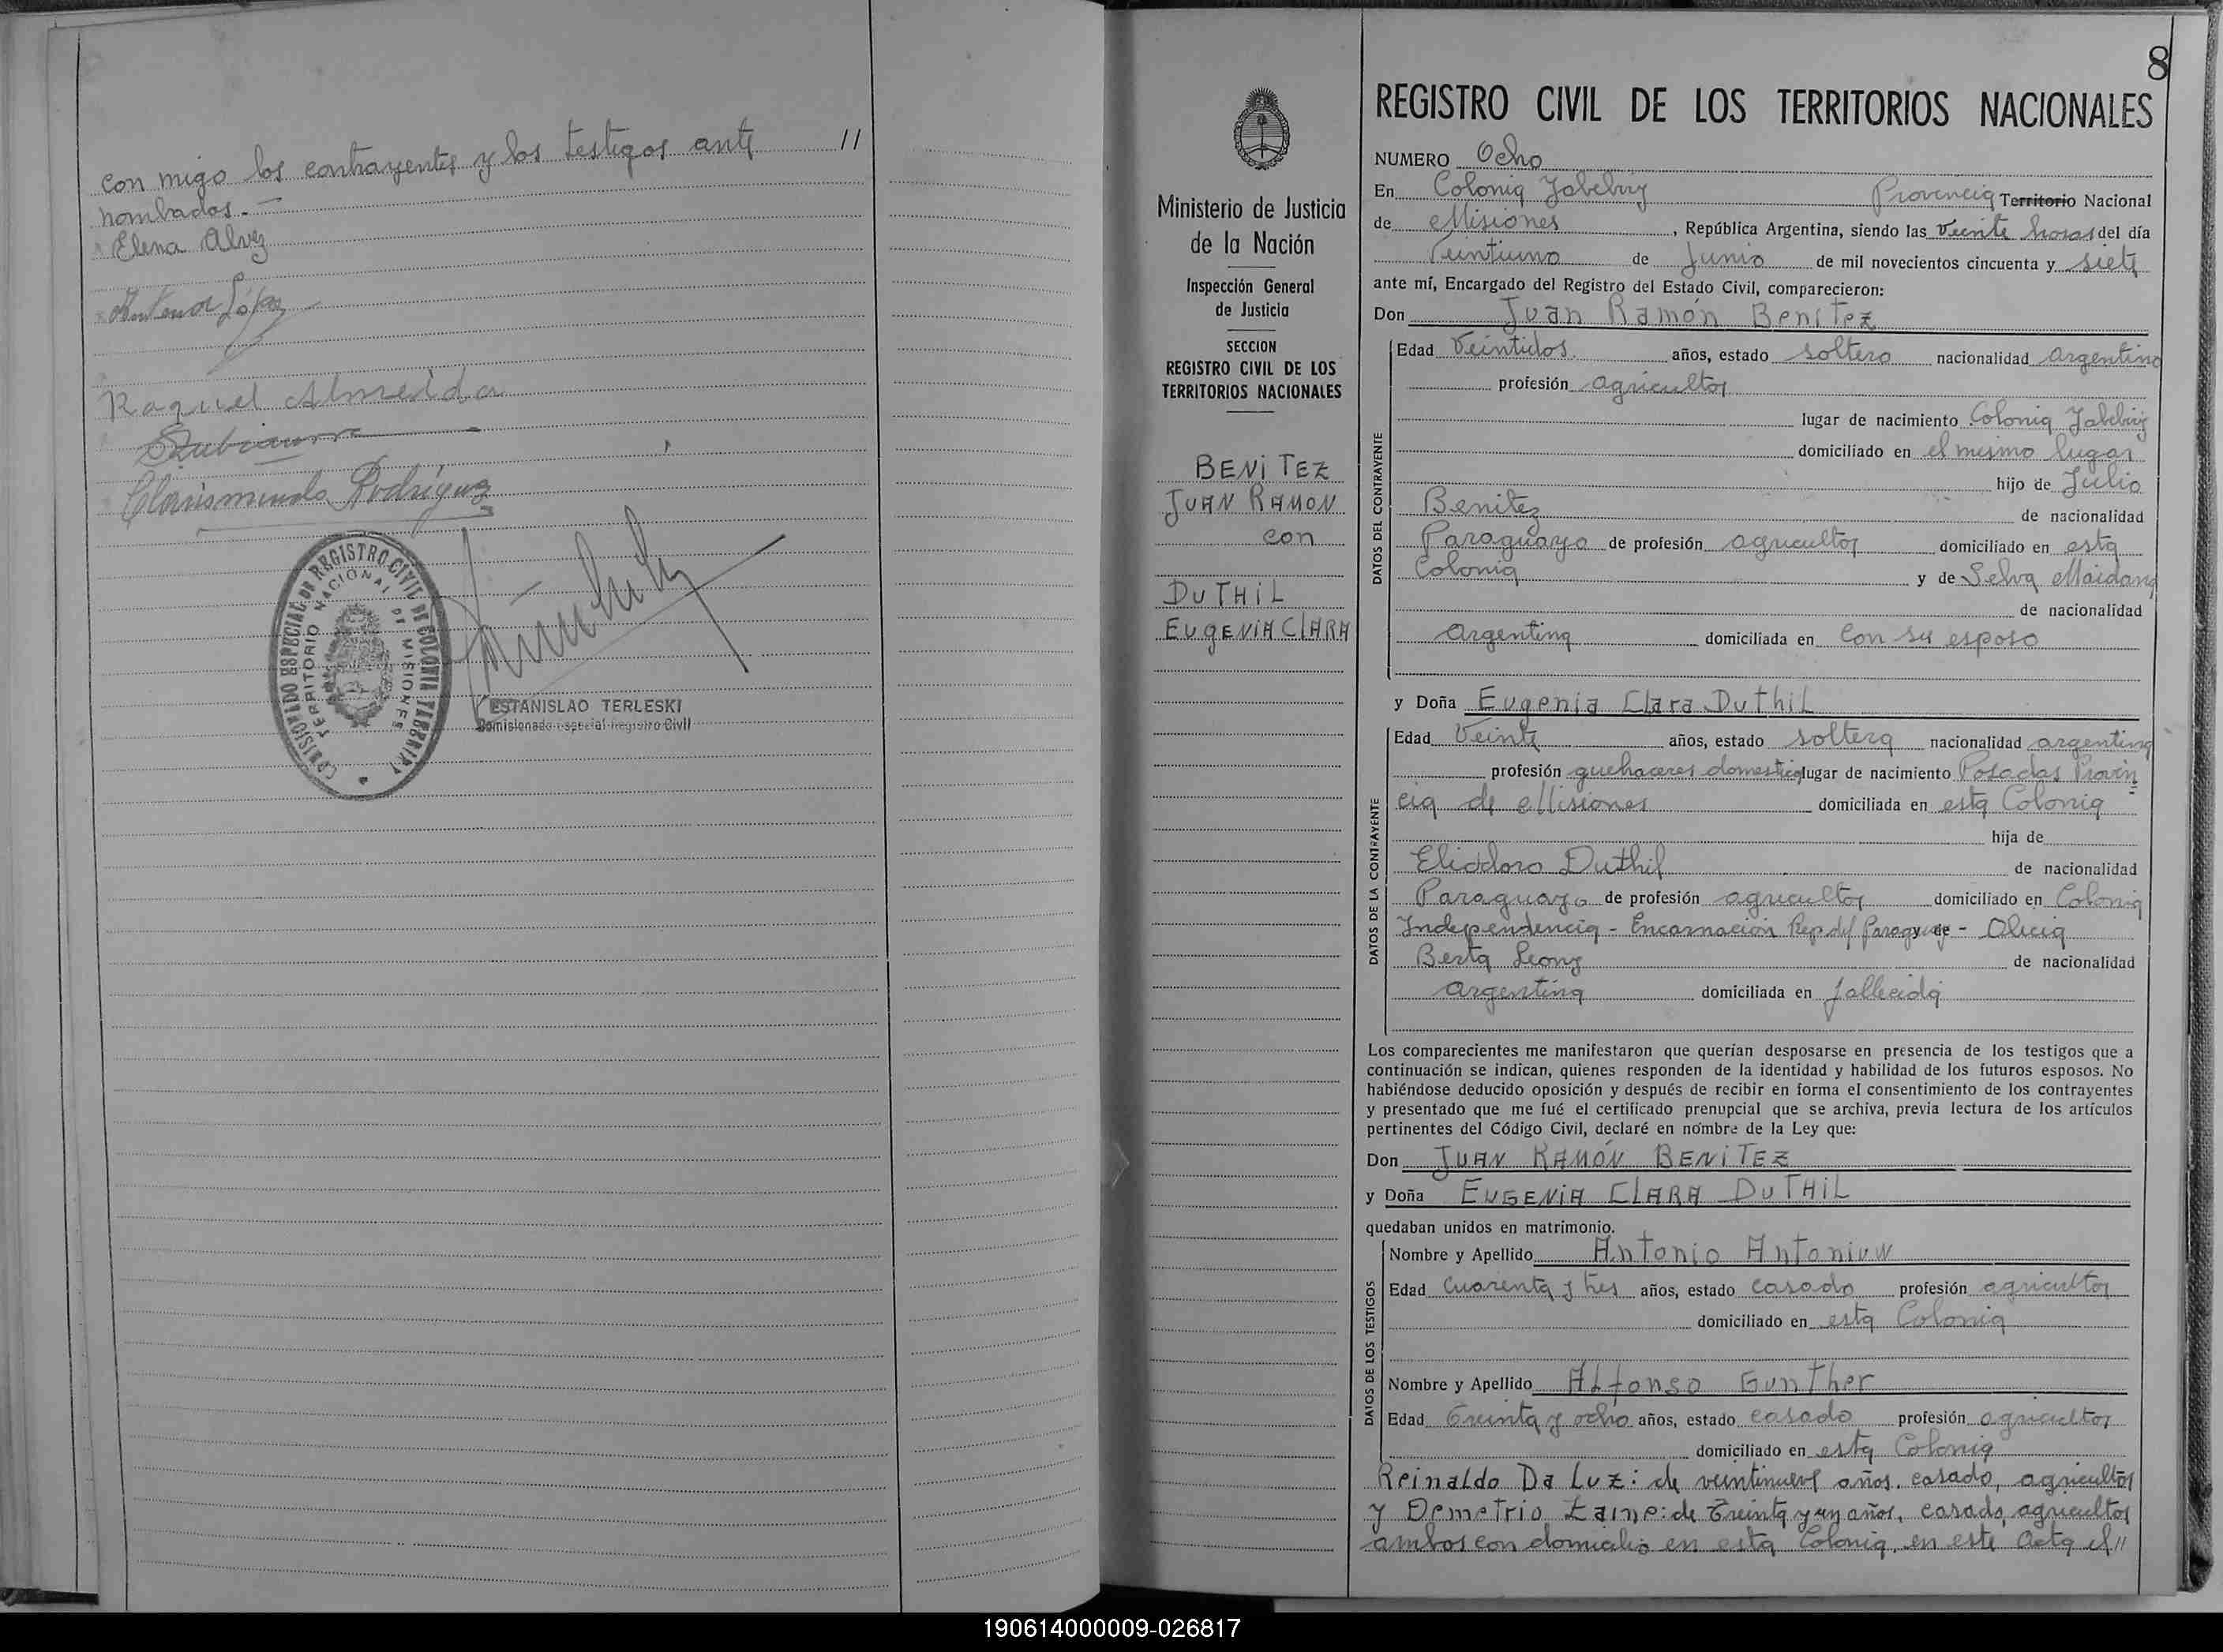 con migo los contrayentes y los testigos ante //
nombados. -
Elena Alvez
Antenor López
Raquel Almeida
Clarismundo Rodríguez
COMISIONADO ESPECIAL DE REGISTRO CIVIL DE COLONIA YABEBIRY
TERRITORIO NACIONAL DE MISIONES
ESTANISLAO TERLESKI
Comisionado especial Registro Civil
8
Ministerio de Justicia
de la Nación
Inspección General
de Justicia
SECCION
REGISTRO CIVIL DE LOS
TERRITORIOS NACIONALES
BENITEZ
JUAN RAMON
con
DUTHIL
EUGENIA CLARA
REGISTRO CIVIL DE LOS TERRITORIOS NACIONALES
NUMERO Ocho
En Colonia Yabebiry Provincia Territorio Nacional
de Misiones, República Argentina, siendo las veinte horas del día
Veintiuno de Junio de mil novecientos cincuenta y siete
ante mí, Encargado del Registro del Estado Civil, comparecieron:
Don Juan Ramón Benitez
DATOS DEL CONTRAYENTE
Edad Veintidos años, estado soltero nacionalidad argentino
profesión agricultor
lugar de nacimiento Colonia Yabebiry
domiciliado en el mismo lugar
hijo de Julio
Benitez de nacionalidad
Paraguayo de profesión agricultor domiciliado en esta
Colonia y de Selva Maidana
de nacionalidad
argentina domiciliada en Con su esposo
y Doña Eugenia Clara Duthil
DATOS DE LA CONTRAYENTE
Edad Veinte años, estado soltera nacionalidad argentina
profesión quehaceres domesticos lugar de nacimiento Posadas Provin
cia de Misiones domiciliada en esta Colonia
hija de
Eliodoro Duthil de nacionalidad
Paraguayo de profesión agricultor domiciliado en Colonia
Independencia - Encarnación Rep. del Paraguay y de - Alicia
Berta Leong de nacionalidad
argentina domiciliada en fallecida
Los comparecientes me manifestaron que querían desposarse en presencia de los testigos que a
continuación se indican, quienes responden de la identidad y habilidad de los futuros esposos. No
habiéndose deducido oposición y después de recibir en forma el consentimiento de los contrayentes
y presentado que me fué el certificado prenupcial que se archiva, previa lectura de los artículos
pertinentes del Código Civil, declaré en nombre de la Ley que:
Don JUAN RAMÓN BENITEZ
y Doña EUGENIA CLARA DUTHIL
quedaban unidos en matrimonio.
DATOS DE LOS TESTIGOS
Nombre y Apellido Antonio Antoniuw
Edad Cuarenta y tres años, estado casado profesión agricultor
domiciliado en esta Colonia
Nombre y Apellido Alfonso Gunther
Edad Treinta y ocho años, estado casado profesión agricultor
domiciliado en esta Colonia
Reinaldo Da Luz: de veintinueve años, casado, agricultor
y Demetrio Laine: de Treinta y un años, casado, agricultor
ambos con domicilio en esta Colonia, en este Acta el //
190614000009-026817